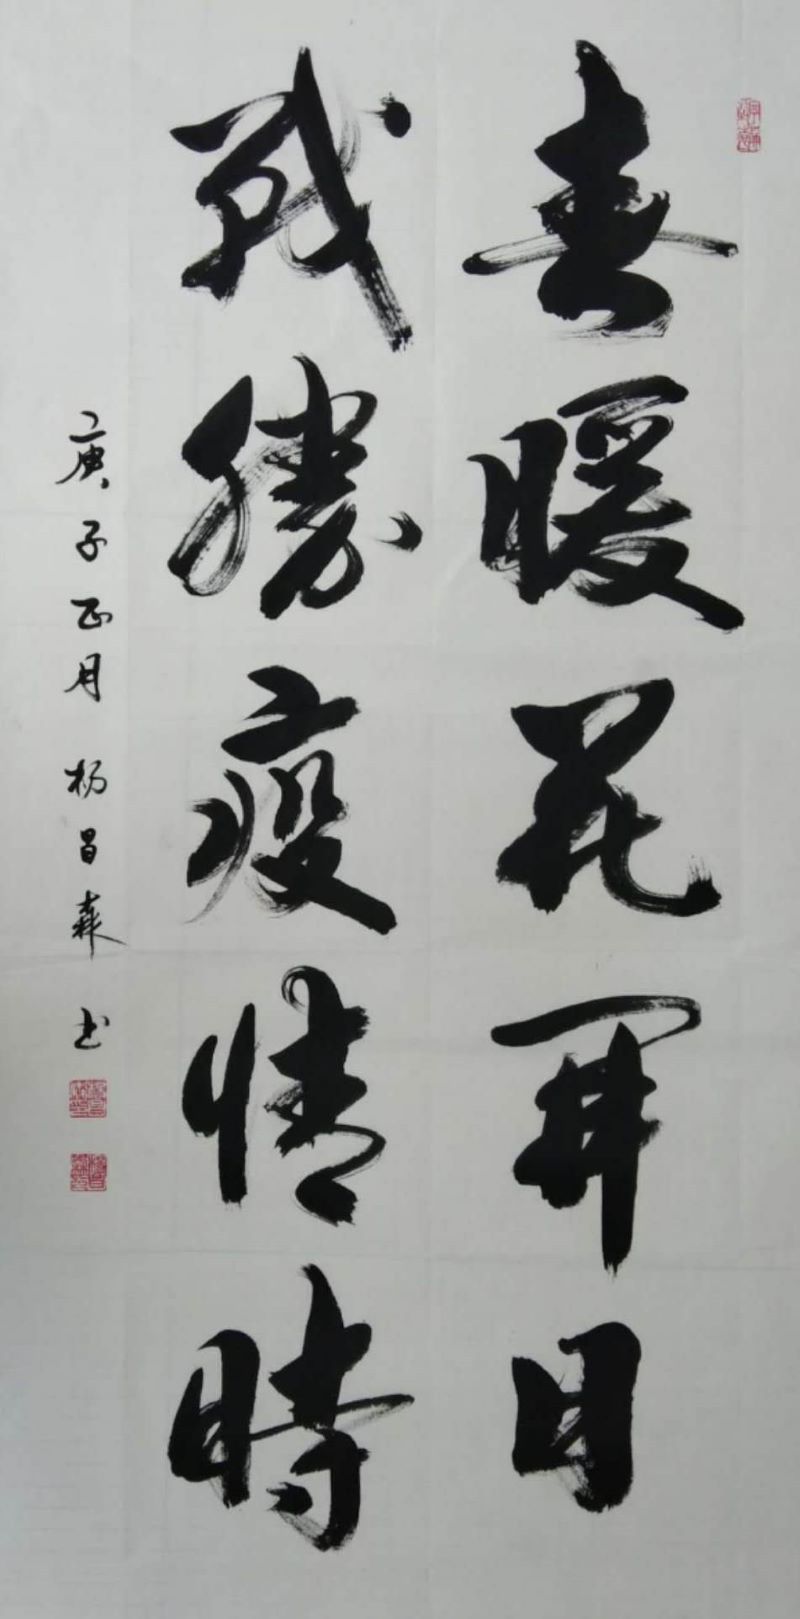 春暖花開日
戰勝疫情時
庚子正月 杨昌森 书